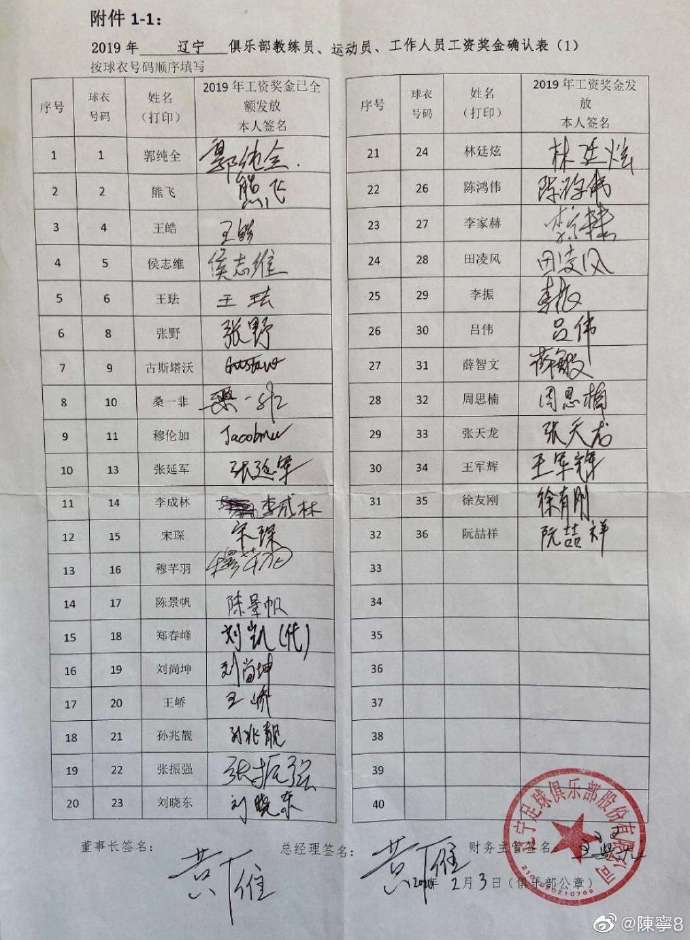 附件 1-1：
2019 年 辽宁 俱乐部教练员、运动员、工作人员工资奖金确认表（1）
按球衣号码顺序填写
序号 球衣号码 姓名（打印） 2019 年工资奖金已全额发放 本人签名
1 1 郭纯全 郭纯全
2 2 熊飞 熊飞
3 4 王皓 王皓
4 5 侯志维 侯志维
5 6 王珐 王珐
6 8 张野 张野
7 9 古斯塔沃 Gustavo
8 10 桑一非 桑一非
9 11 穆伦加
10 13 张延军 张延军
11 14 李成林 李成林
12 15 宋琛 宋琛
13 16 穆芊羽
14 17 陈景帆 陈景帆
15 18 郑春峰 刘凯(代)
16 19 刘尚坤 刘尚坤
17 20 王峤 王峤
18 21 孙兆靓 孙兆靓
19 22 张振强 张振强
20 23 刘晓东 刘晓东
序号 球衣号码 姓名（打印） 2019 年工资奖金发放 本人签名
21 24 林廷炫 林廷炫
22 26 陈鸿伟 陈鸿伟
23 27 李家赫
24 28 田凌风 田凌风
25 29 李振 李振
26 30 吕伟 吕伟
27 31 薛智文
28 32 周思楠 周思楠
29 33 张天龙 张天龙
30 34 王军辉 王军辉
31 35 徐友刚 徐有刚
32 36 阮喆祥 阮喆祥
33
34
35
36
37
38
39
40
董事长签名： 黄雁 总经理签名： 黄雁 财务主管签名
年 2月3日（俱乐部公章）
辽宁足球俱乐部股份有限公司
@陳寧8